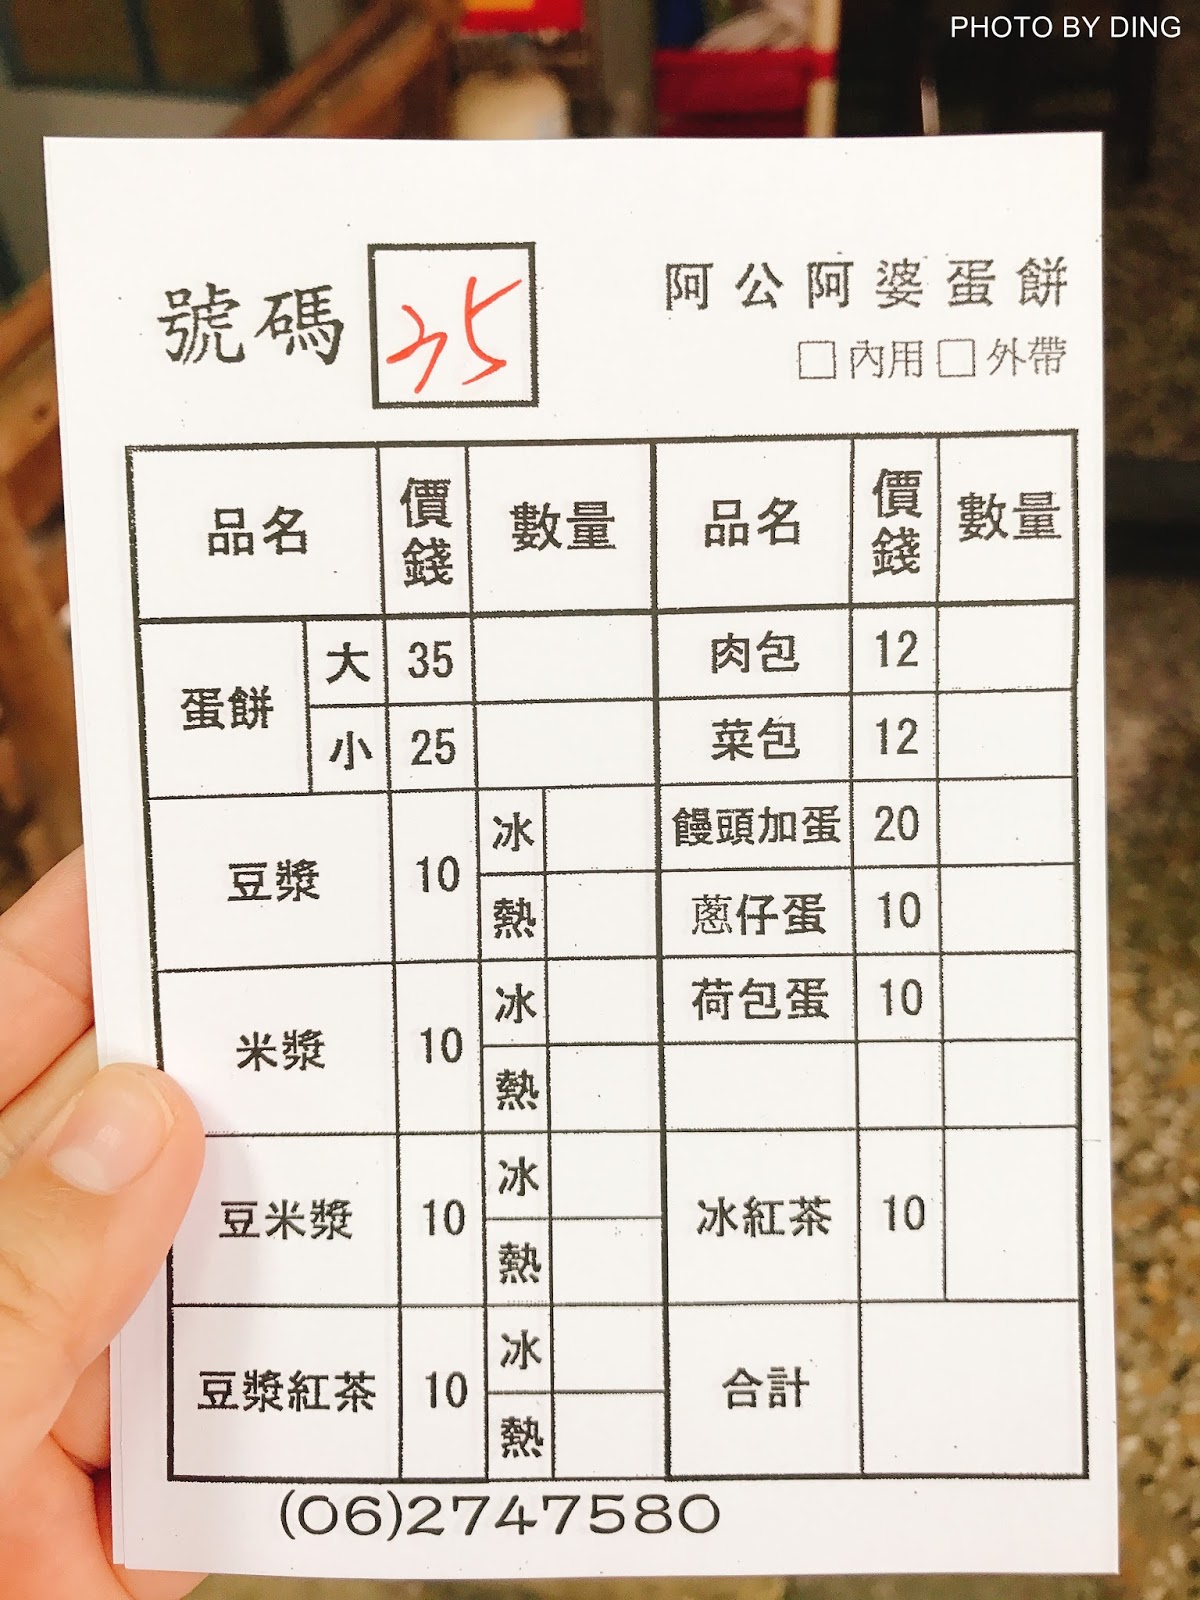 PHOTO BY DING
號碼 35
阿公阿婆蛋餅
□內用□外帶
品名 價錢 數量 品名 價錢 數量
蛋餅 大 35 肉包 12
小 25 菜包 12
豆漿 10 冰 饅頭加蛋 20
熱 蔥仔蛋 10
米漿 10 冰 荷包蛋 10
熱
豆米漿 10 冰 冰紅茶 10
熱
豆漿紅茶 10 冰 合計
熱
(06)2747580